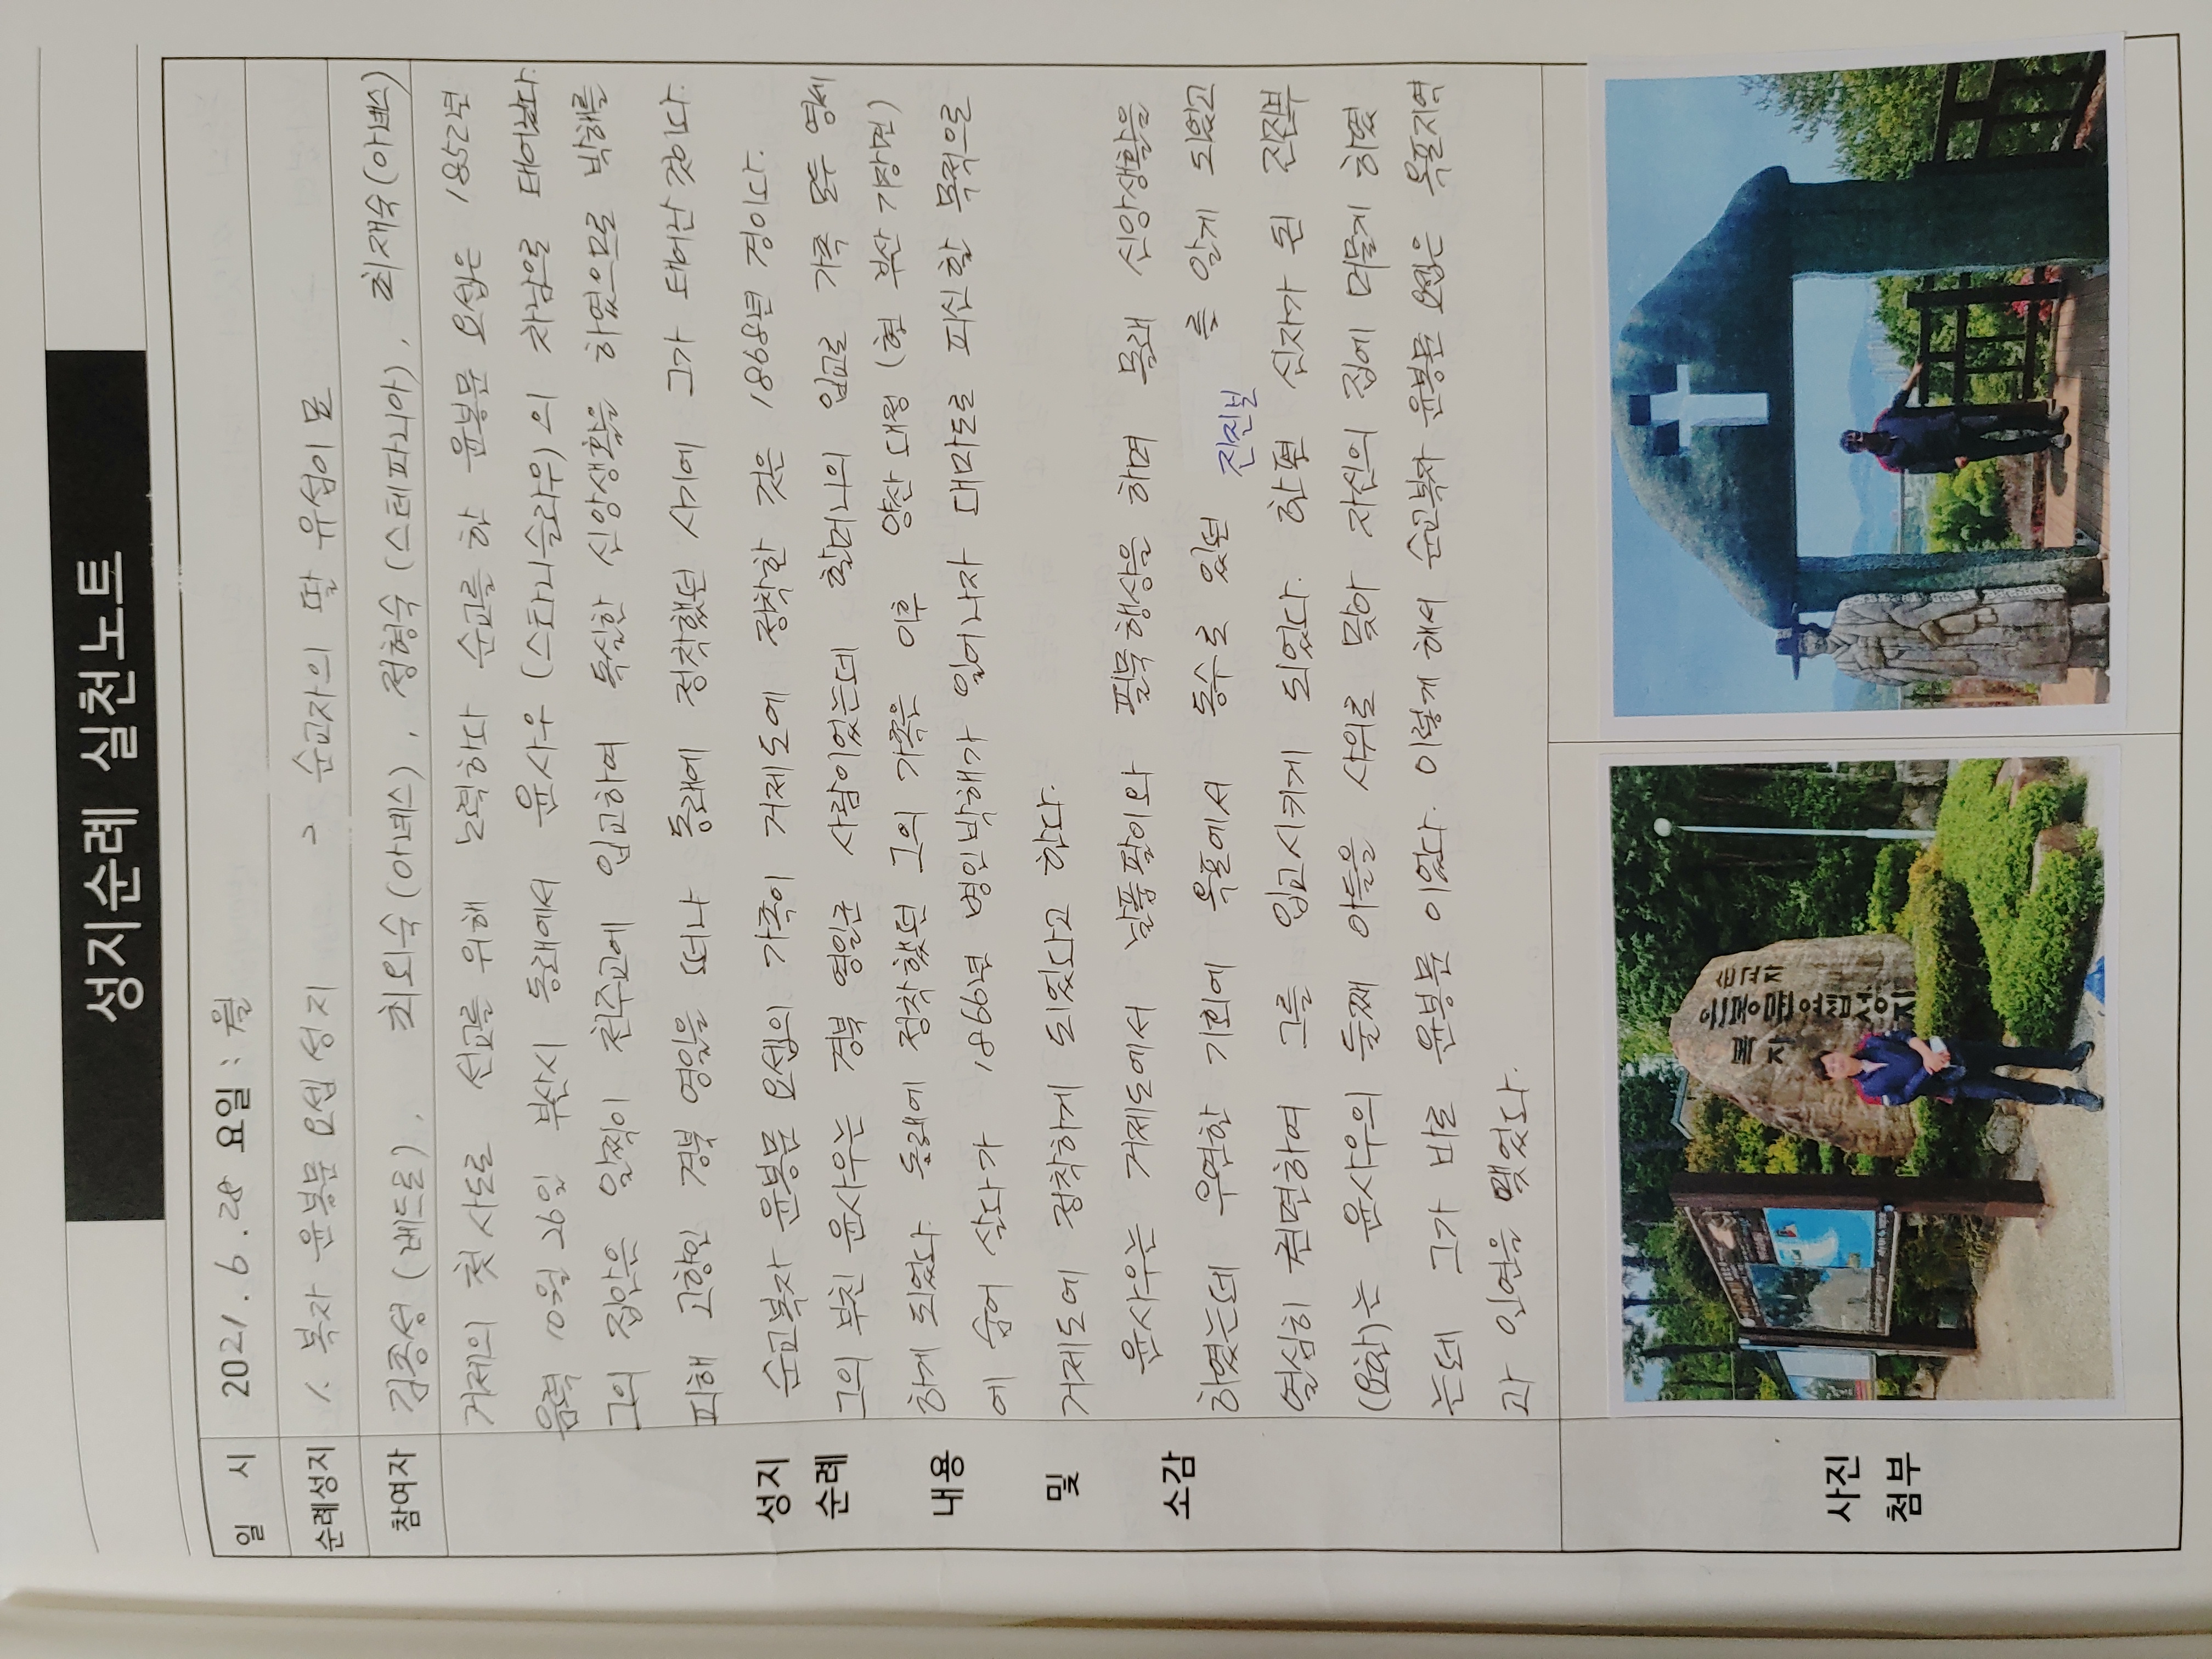 성지순례 실천노트
일 시 2021. 6. 28 요일 : 월
순례성지 1. 복자 윤봉문 요셉 성지 2 순교자의 딸 유섬이 묘
참여자 김종성 (베드로), 최외숙 (아녜스), 정형숙 (스테파니아), 최재숙 (아녜스)
성지 순례 내용 및 소감
거제의 첫 사도로 선교를 위해 노력하다 순교를 한 윤봉문 요셉은 1852년
음력 10월 26일 부산시 동래에서 윤사우 (스타니슬라우)의 차남으로 태어났다.
그의 집안은 일찍이 천주교에 입교하여 독실한 신앙생활을 하였으므로 박해를
피해 고향인 경북 영일을 떠나 동래에 정착했던 시기에 그가 태어난 것이다.
순교복자 윤봉문 요셉의 가족이 거제도에 정착한 것은 1868년 경이다.
그의 부친 윤사우는 경북 영일군 사람이었는데 할머니의 입교로 가족 모두 영세
하게 되었다. 동래에 정착했던 그의 가족은 이후 양산 대청 (현 부산 기장면)
에 숨어 살다가 1866년 병인박해가 일어나자 대마도로 피신할 목적으로
거제도에 정착하게 되었다고 한다.
윤사우는 거제도에서 날품팔이와 필묵행상을 하며 몰래 신앙생활을
하였는데 우연한 기회에 옥포에서 동수로 있던 진진보 를 알게 되었고
열심히 권면하여 그를 입교시키게 되었다. 한편 신자가 된 진진부
(요한)는 윤사우의 둘째 아들을 사위로 맞아 자신의 집에 머물게 하였
는데 그가 바로 윤봉문 이었다. 이렇게 해서 순교복자 윤봉문 요셉은 옥포지역
과 인연을 맺었다.
사진 첨부
순교자
윤봉문요셉성지
복자